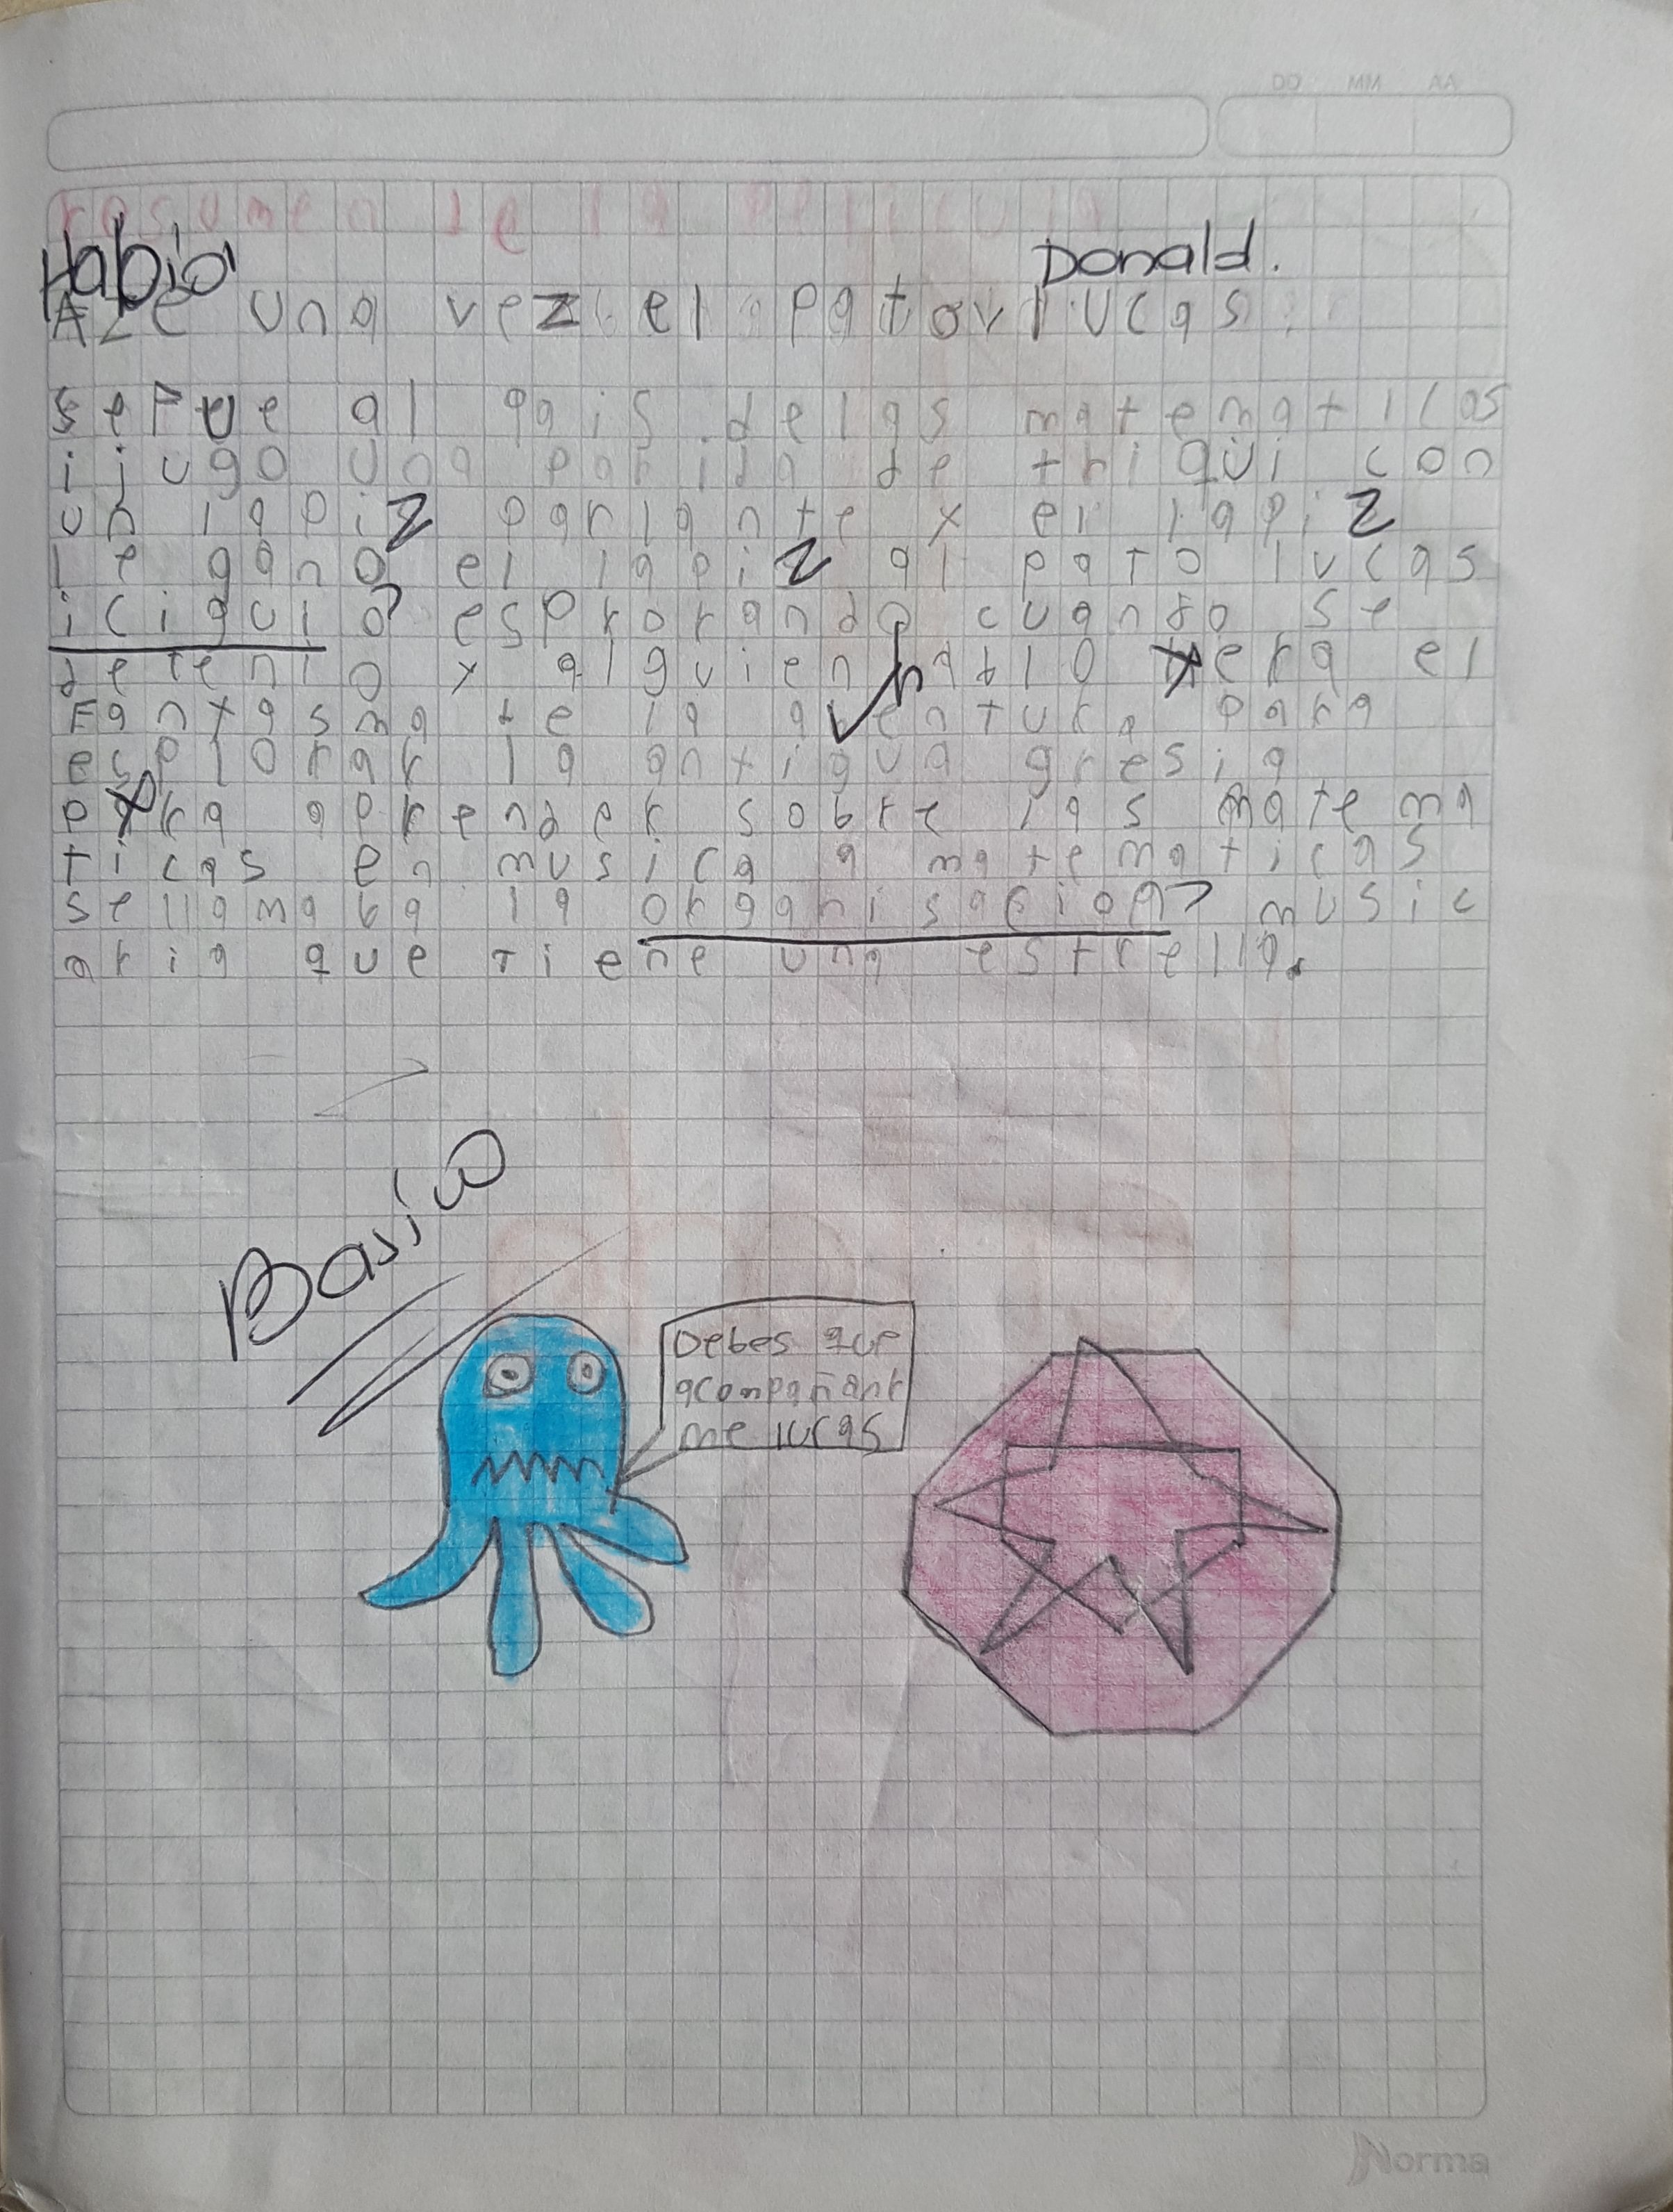 AA MM DD
resumen de la pelicula
Habia Donald.
Aze una vez el pato lucas
se fue al pais de las matematicas
i jugo una parida de triqui con
un lapiz parlante y el lapiz
le gano el lapiz al pato lucas
i ciguio? esprorando cuando se
detenio y alguien hablo y era el
Fantasma de la aventura para
esplorar la antigua gresia
para aprender sobre las matema
ticas en musica a matematicas
se llamaba la organisacion? music
aria que tiene una estrella.
Basico
Debes que
acompañar
me lucas
Norma